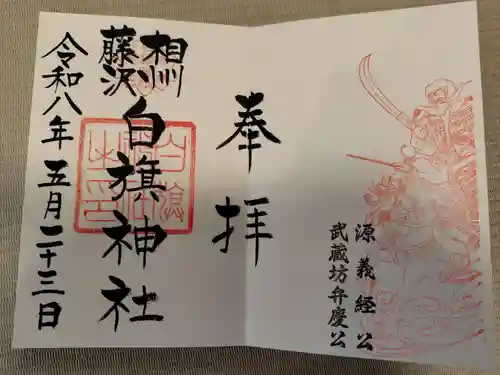 源義経公
武蔵坊弁慶公
奉拝
相州
藤沢
白旗神社
令和八年五月二十三日